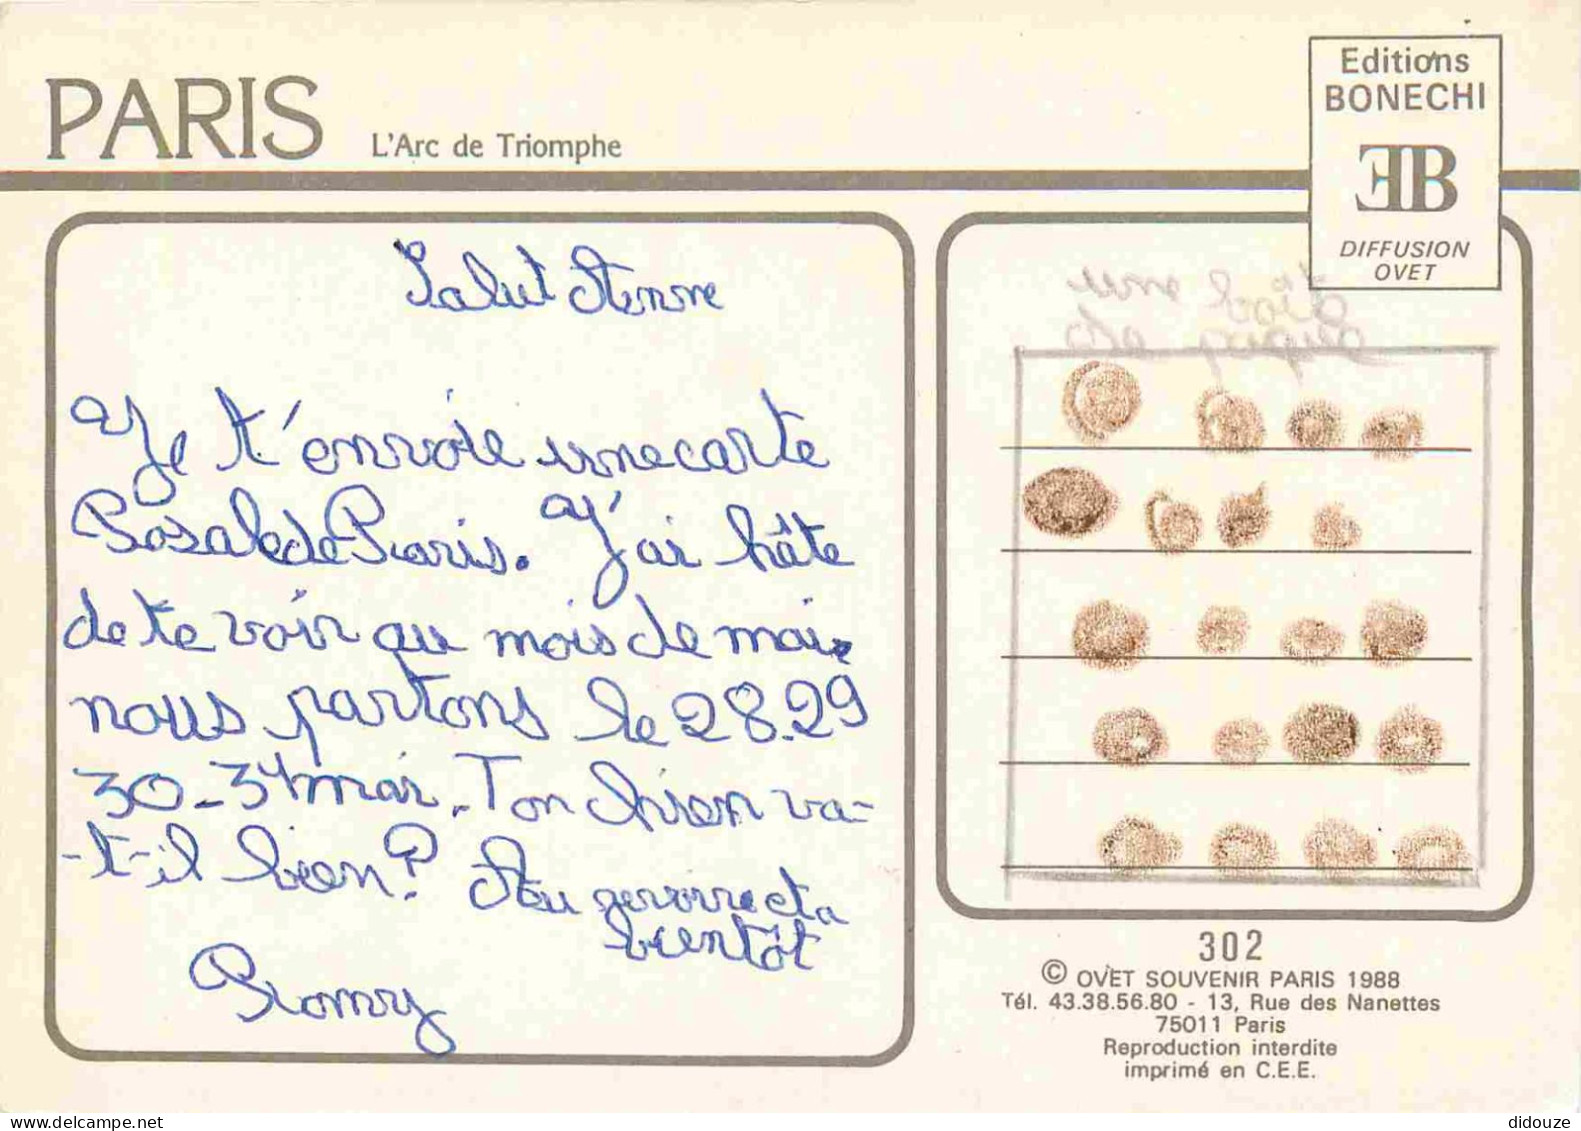 Editions
BONECHI
PARIS
L'Arc de Triomphe
EB
DIFFUSION
OVET
Salut
Je t'envoie une carte
Posale de Paris. J'ai hâte
de te voir au mois de mai
nous partons le 28.29
30-31 mai. Ton chien va-
-t-il bien? Au revoir et a
bientôt
302
© OVET SOUVENIR PARIS 1988
Tél. 43.38.56.80 - 13, Rue des Nanettes
75011 Paris
Reproduction interdite
imprimé en C.E.E.
didouze